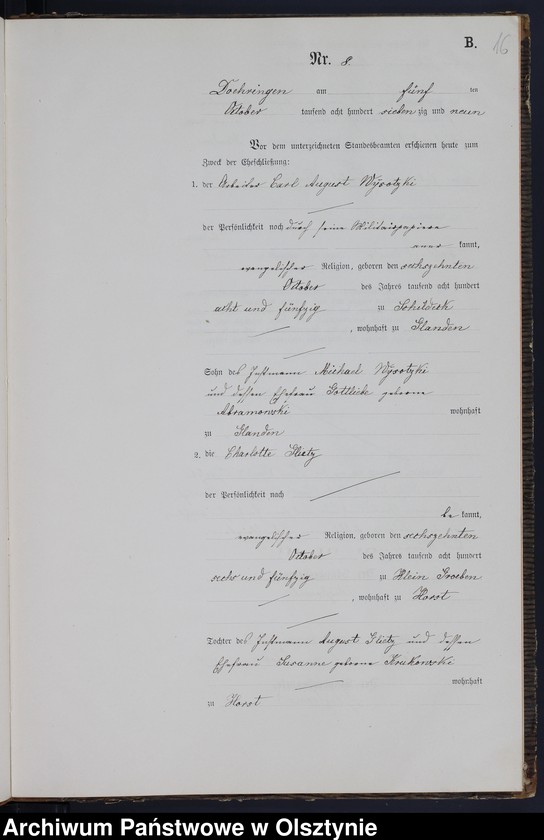 B. 16
Nr. 8.
Doehringen am fünf ten
October tausend acht hundert siebenzig und neun
Vor dem unterzeichneten Standesbeamten erschienen heute zum
Zweck der Eheschließung:
1. der Arbeiter Carl August Wysotzki
der Persönlichkeit nach durch seine Militairpapiere
aner kannt,
evangelischer Religion, geboren den sechszehnten
October des Jahres tausend acht hundert
acht und fünfzig zu Schildeck
, wohnhaft zu Glanden
Sohn des Instmann Michael Wysotzki
und dessen Ehefrau Gottliebe geborne
Abramowski wohnhaft
zu Glanden
2. die Charlotte
der Persönlichkeit nach
be kannt,
evangelischer Religion, geboren den sechszehnten
October des Jahres tausend acht hundert
sechs und fünfzig zu Klein Groeben
, wohnhaft zu Horst
Tochter des Instmann August und dessen
Ehefrau Susanne geborne Krukowski
wohnhaft
zu Horst
Archiwum Państwowe w Olsztynie